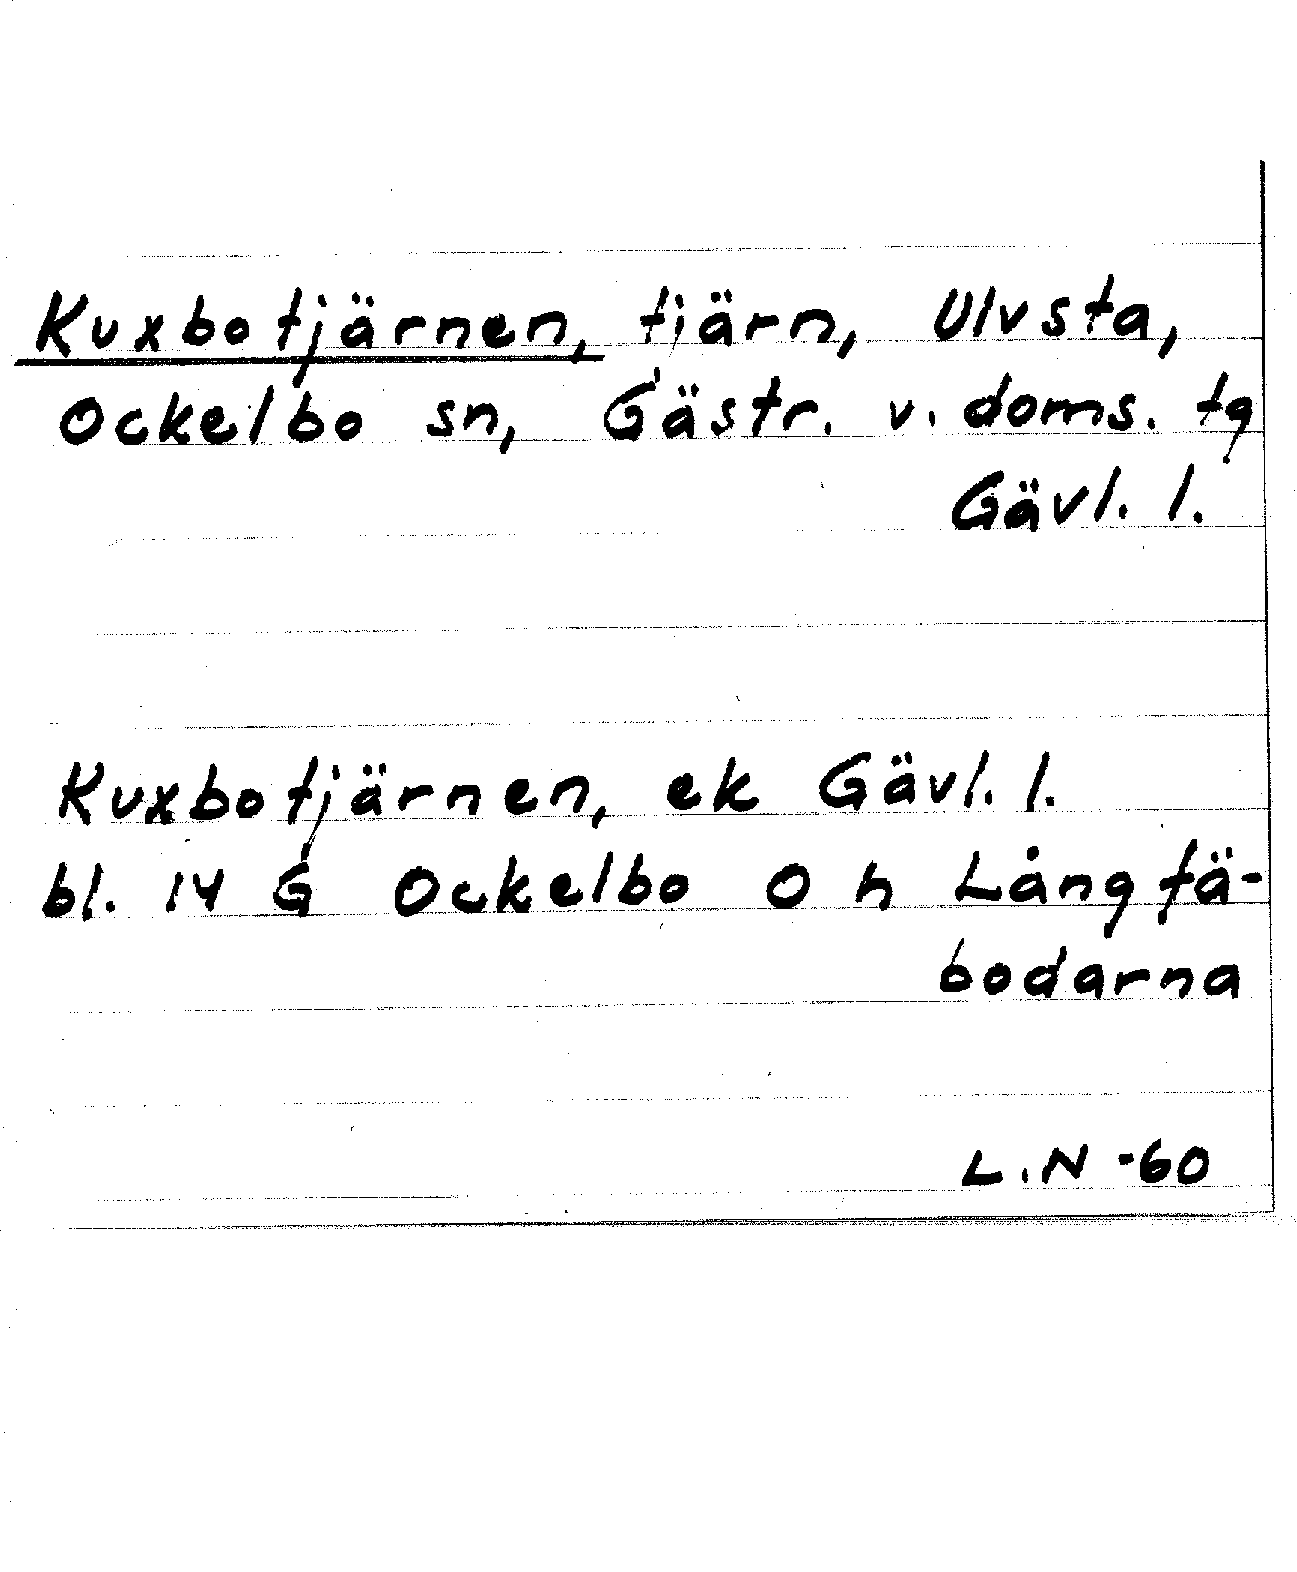 Kuxbotjärnen, tjärn, Ulvsta,
Ockelbo sn, Gästr. v. doms. tg
Gävl. l.
Kuxbotjärnen, ek Gävl. l.
bl. 14 G Ockelbo O h Långfä-
bodarna
L.N -60